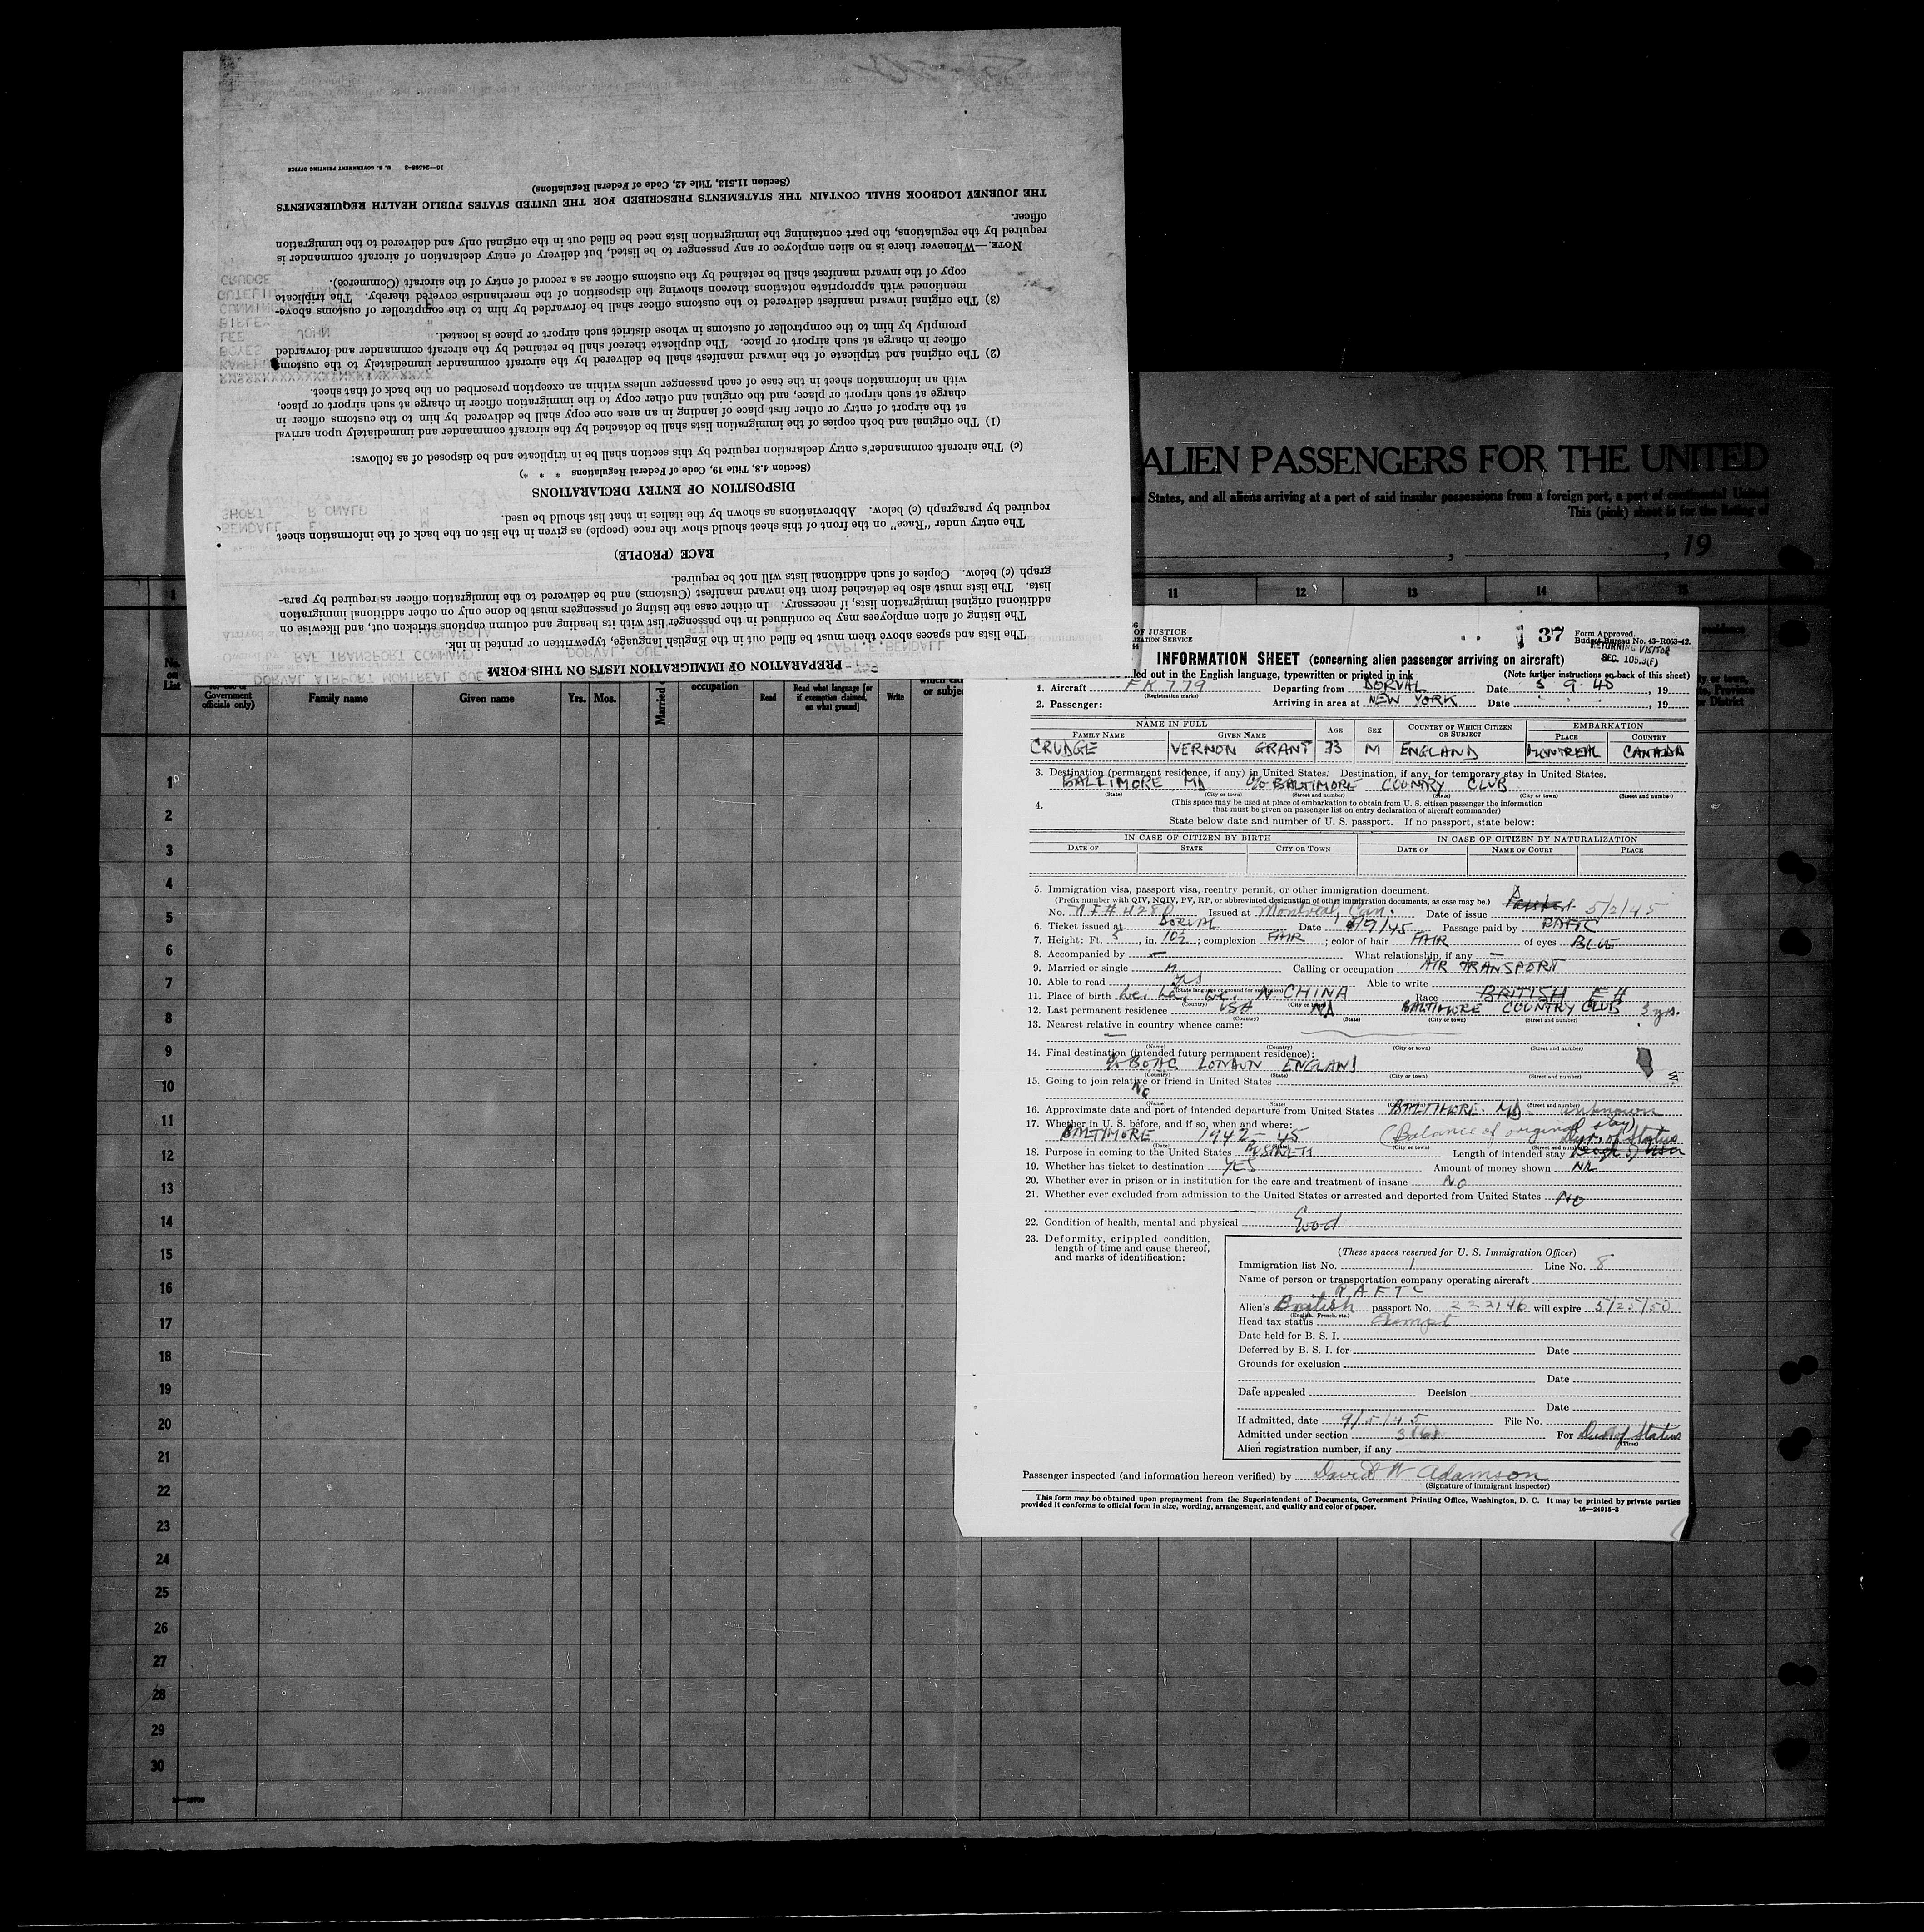 PREPARATION OF IMMIGRATION LISTS ON THIS FORM
The lists and spaces above them must be filled out in the English language, typewritten or printed in ink.
The listing of alien employees may be continued in the passenger list with its heading and column captions stricken out, and likewise on
additional original immigration lists, if necessary. In either case the listing of passengers must be done only on other additional immigration
lists. The lists must also be detached from the inward manifest (Customs) and be delivered to the immigration officer as required by para-
graph (c) below. Copies of such additional lists will not be required.
RACE (PEOPLE)
The entry under "Race" on the front of this sheet should show the race (people) as given in the list on the back of the information sheet
required by paragraph (c) below. Abbreviations as shown by the italics in that list should be used.
DISPOSITION OF ENTRY DECLARATIONS
(Section 4.8, Title 19, Code of Federal Regulations * * *)
(c) The aircraft commander's entry declaration required by this section shall be in triplicate and be disposed of as follows:
(1) The original and both copies of the immigration lists shall be detached by the aircraft commander and immediately upon arrival
at the airport of entry or other first place of landing in an area one copy shall be delivered by him to the customs officer in
charge at such airport or place, and the original and other copy to the immigration officer in charge at such airport or place,
with an information sheet in the case of each passenger unless within an exception prescribed on the back of that sheet.
(2) The original and triplicate of the inward manifest shall be delivered by the aircraft commander immediately to the customs
officer in charge at such airport or place. The duplicate thereof shall be retained by the aircraft commander and forwarded
promptly by him to the comptroller of customs in whose district such airport or place is located.
(3) The original inward manifest delivered to the customs officer shall be forwarded by him to the comptroller of customs above-
mentioned with appropriate notations thereon showing the disposition of the merchandise covered thereby. The triplicate
copy of the inward manifest shall be retained by the customs officer as a record of entry of the aircraft (Commerce).
NOTE.—Whenever there is no alien employee or any passenger to be listed, but delivery of entry declaration of aircraft commander is
required by the regulations, the part containing the immigration lists need be filled out in the original only and delivered to the immigration
officer.
THE JOURNEY LOGBOOK SHALL CONTAIN THE STATEMENTS PRESCRIBED FOR THE UNITED STATES PUBLIC HEALTH REQUIREMENTS
(Section 11.513, Title 42, Code of Federal Regulations)
16—24598-3 U. S. GOVERNMENT PRINTING OFFICE
ALIEN PASSENGERS FOR THE UNITED
States, and all aliens arriving at a port of said insular possessions from a foreign port, a port of continental United
This (pink) sheet is for the listing of
, 19
11 12 13 14 15
No. on List
Government officials only)
Family name Given name Yrs. Mos. Married occupation Read Read what language [or if exemption claimed, on what ground] Write
1
2
3
4
5
6
7
8
9
10
11
12
13
14
15
16
17
18
19
20
21
22
23
24
25
26
27
28
29
30
OF JUSTICE
37 Form Approved.
Budget Bureau No. 43-R063-42.
RETURNING VISITOR
SEC. 105.3(F)
INFORMATION SHEET (concerning alien passenger arriving on aircraft)
led out in the English language, typewritten or printed in ink (Note further instructions on back of this sheet)
1. Aircraft FK 779 Departing from DORVAL Date 5 9 45, 19
(Registration marks)
2. Passenger: Arriving in area at NEW YORK Date , 19
NAME IN FULL AGE SEX COUNTRY OF WHICH CITIZEN OR SUBJECT EMBARKATION
FAMILY NAME GIVEN NAME PLACE COUNTRY
CRUDGE VERNON GRANT 33 M ENGLAND MONTREAL CANADA
3. Destination (permanent residence, if any) in United States. Destination, if any, for temporary stay in United States.
BALTIMORE MD c/o BALTIMORE COUNTRY CLUB
(State) (City or town) (Street and number) (State) (City or town) (Street and number)
4. (This space may be used at place of embarkation to obtain from U. S. citizen passenger the information
that must be given on passenger list on entry declaration of aircraft commander)
State below date and number of U. S. passport. If no passport, state below:
IN CASE OF CITIZEN BY BIRTH IN CASE OF CITIZEN BY NATURALIZATION
DATE OF STATE CITY OR TOWN DATE OF NAME OF COURT PLACE
5. Immigration visa, passport visa, reentry permit, or other immigration document.
(Prefix number with QIV, NQIV, PV, RP, or abbreviated designation of other immigration documents, as case may be.)
No. 4280 Issued at Montreal, Can. Date of issue 5/2/45
6. Ticket issued at DORVAL Date 5/9/45 Passage paid by RAFTC
7. Height: Ft. 5, in. 10½; complexion FAIR; color of hair FAIR of eyes BLUE
8. Accompanied by — What relationship, if any —
9. Married or single M Calling or occupation AIR TRANSPORT
10. Able to read yes Able to write
(State language or ground for exemption)
11. Place of birth N. CHINA Race BRITISH
(Country) (City or town)
12. Last permanent residence USA MD BALTIMORE COUNTRY CLUB 3 yrs.
(Country) (State) (City or town) (Street and number)
13. Nearest relative in country whence came: —
(Name) (Country) (City or town) (Street and number)
14. Final destination (intended future permanent residence):
c/o BOAC LONDON ENGLAND
(Country) (State) (City or town) (Street and number)
15. Going to join relative or friend in United States
No
(Name) (State) (City or town) (Street and number)
16. Approximate date and port of intended departure from United States BALTIMORE. MD. unknown
17. Whether in U. S. before, and if so, when and where:
BALTIMORE 1942 - 45 (Balance of original stay) Dur. of Status
(Date) (City or town) (Street and number)
18. Purpose in coming to the United States BUSINESS Length of intended stay
19. Whether has ticket to destination YES Amount of money shown NIL
20. Whether ever in prison or in institution for the care and treatment of insane NO
21. Whether ever excluded from admission to the United States or arrested and deported from United States NO
22. Condition of health, mental and physical Good
23. Deformity, crippled condition,
length of time and cause thereof,
and marks of identification:
(These spaces reserved for U. S. Immigration Officer)
Immigration list No. 1 Line No. 8
Name of person or transportation company operating aircraft
RAFTC
Alien's British passport No. 222146 will expire 5/25/50
(English, French, etc.)
Head tax status Exempt
Date held for B. S. I.
Deferred by B. S. I. for Date
Grounds for exclusion
Date
Date appealed Decision
Date
If admitted, date 9/5/45 File No.
Admitted under section For Dur of Status
(Time)
Alien registration number, if any
Passenger inspected (and information hereon verified) by David W Adamson
(Signature of immigrant inspector)
This form may be obtained upon prepayment from the Superintendent of Documents, Government Printing Office, Washington, D. C. It may be printed by private parties
provided it conforms to official form in size, wording, arrangement, and quality and color of paper. 16—24915-3